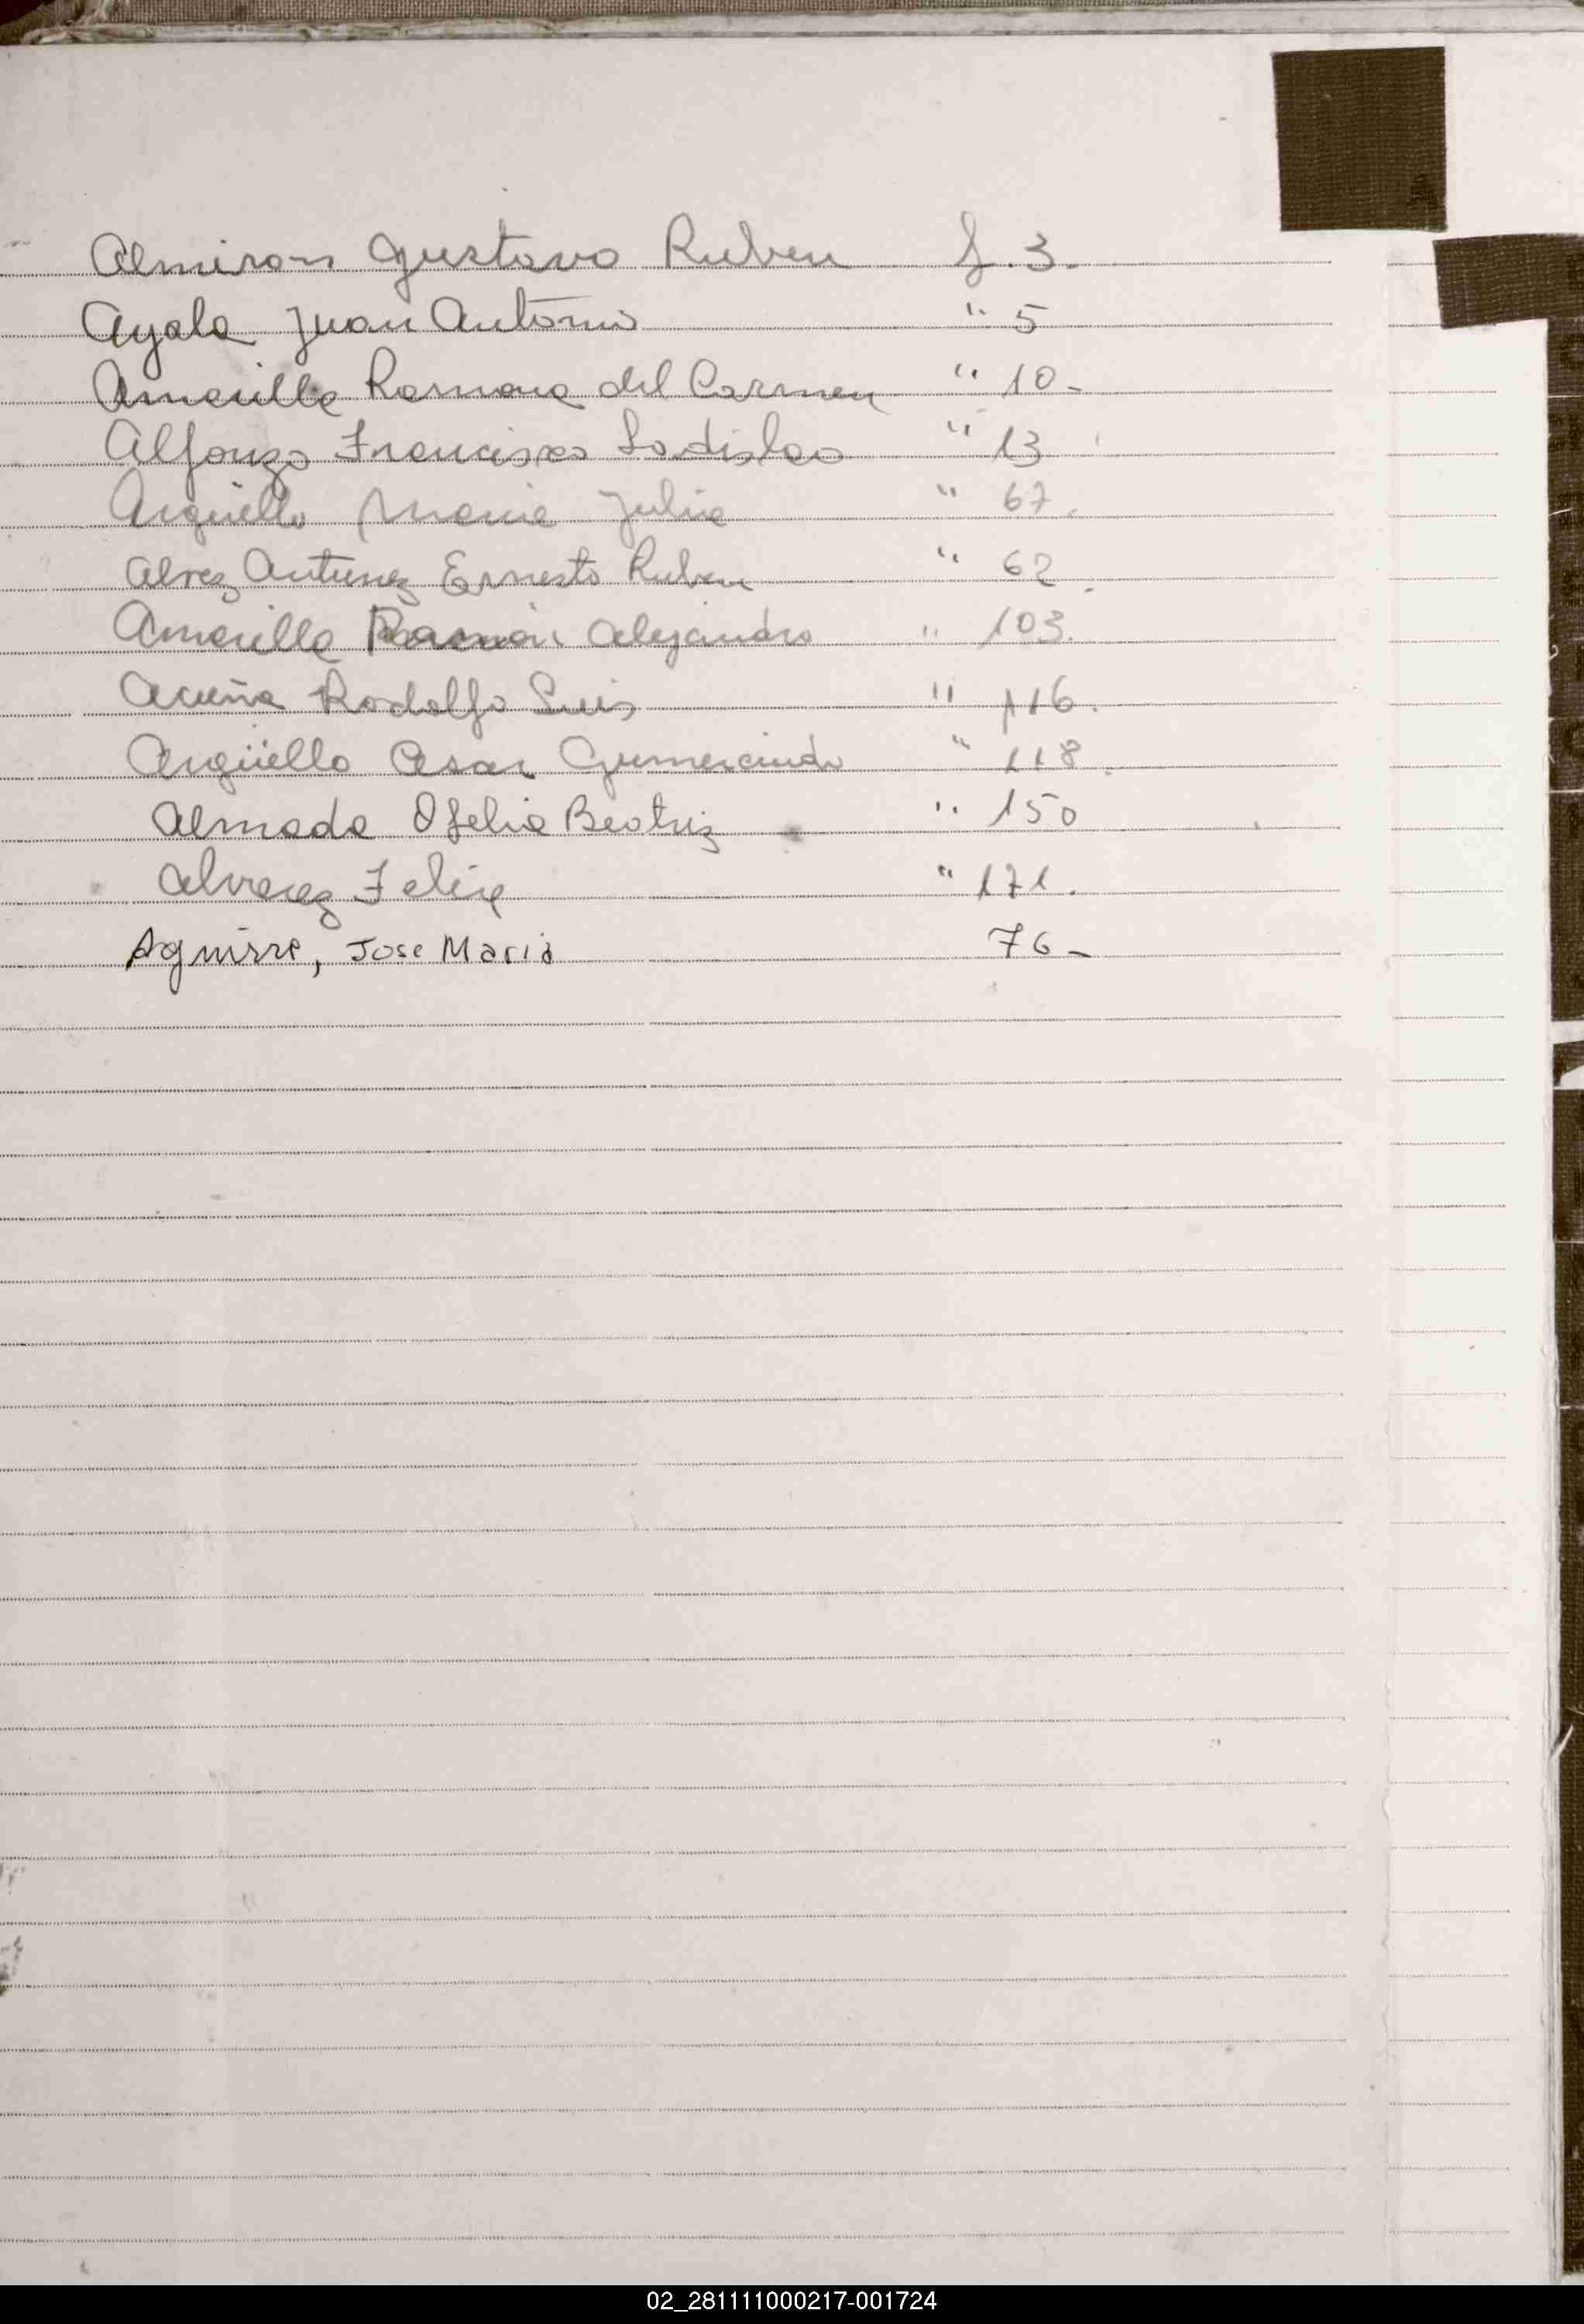 Almiron Gustavo Ruben f. 3.
Ayala Juan Antonio " 5
Amarilla Ramona del Carmen " 10-
Alfonzo Francisco Ladislao " 13
Argüello Maria Julia " 67.
Alvez Antunez Ernesto Ruben " 62.
Amarilla Ramón Alejandro " 103.
Acuña Rodolfo Luis " 116.
Argüello Cesar Gumercindo " 118.
Almada Ofelia Beatriz " 150
Alvarez Felix " 171.
Aguirre, Jose Maria 76-
02_281111000217-001724